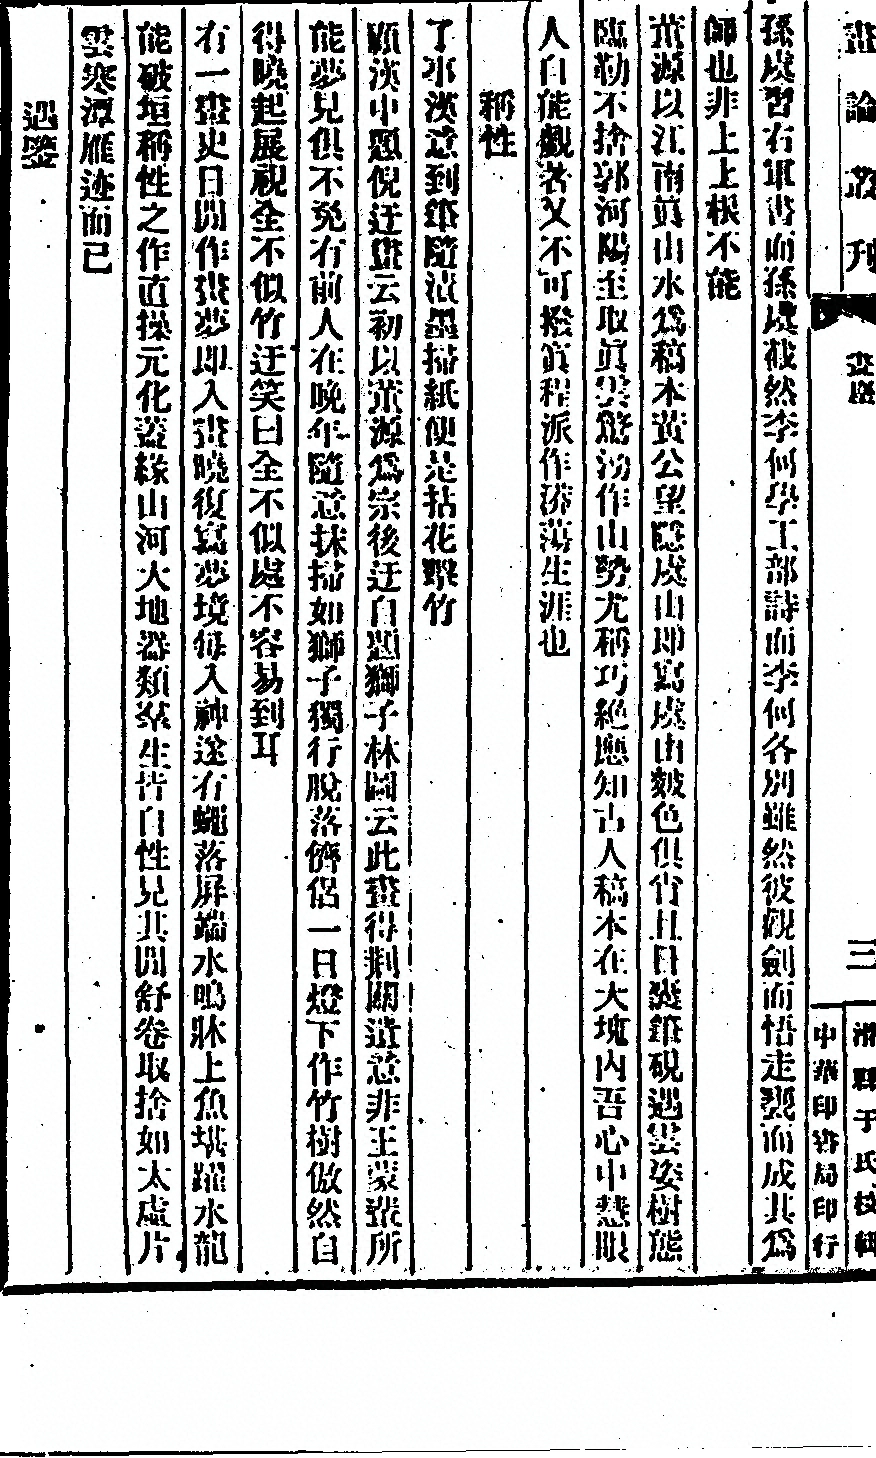 畫論叢刊
畫麈
三
中華印書局印行
于氏校輯
孫虔習右軍書而孫虔截然李何學工部詩而李何各別雖然彼觀劍而悟走甕而成其爲
師也非上上根不能
董源以江南眞山水爲稿本黃公望隱虞山卽寫虞山皴色俱肖且日囊筆硯遇雲姿樹態
臨勒不捨郭河陽至取眞雲驚湧作山勢尤稱巧絕應知古人稿本在大塊內吾心中慧眼
人自能觀著又不可撥眞程派作漭蕩生涯也
稱性
了事漢意到筆隨漬墨掃紙便是拈花擊竹
顧漢中題倪迂畫云初以董源爲宗後迂自題獅子林圖云此畫得荆關遺意非王蒙輩所
能夢見俱不免有前人在晚年隨意抹掃如獅子獨行脫落儕侶一日燈下作竹樹傲然自
得曉起展視全不似竹迂笑曰全不似處不容易到耳
有一畫史日閒作畫夢卽入畫曉復寫夢境每入神遂有蠅落屏端水鳴牀上魚堪躍水龍
能破垣稱性之作直操元化蓋緣山河大地器類羣生皆自性見其閒舒卷取捨如太虛片
雲寒潭雁迹而已
遇鑒